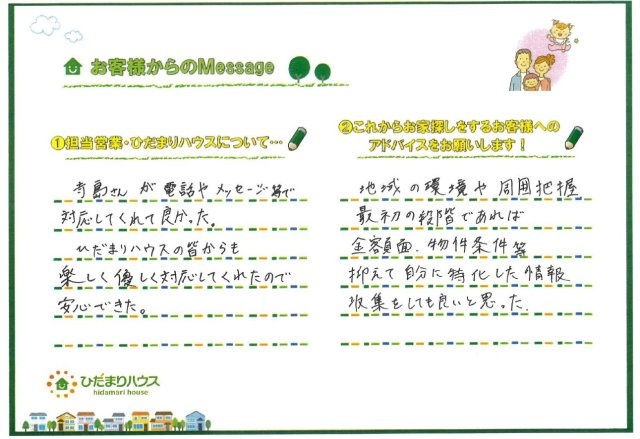 お客様からのMessage
❶担当営業・ひだまりハウスについて…
寺島さん が 電話や メッセージ等で
対応してくれて良かった。
ひだまりハウスの皆からも
楽しく優しく対応してくれたので
安心できた。
❷これからお家探しをするお客様への
アドバイスをお願いします！
地域の環境や周囲把握
最初の段階であれば
金額面、物件条件等
抑えて自分に特化した情報
収集をしても良いと思った.
ひだまりハウス
hidamari house